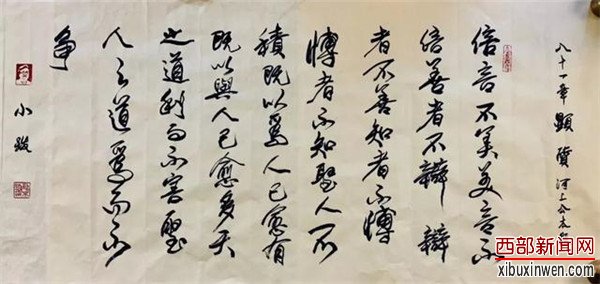 八十一章 顯質 河上公
信言不美美言不
信善者不辯辯
者不善知者不博
博者不知聖人不
積既以爲人己愈有
既以與人己愈多天
之道利而不害聖
人之道爲而不
争
小
西部新闻网
xibuxinwen.com